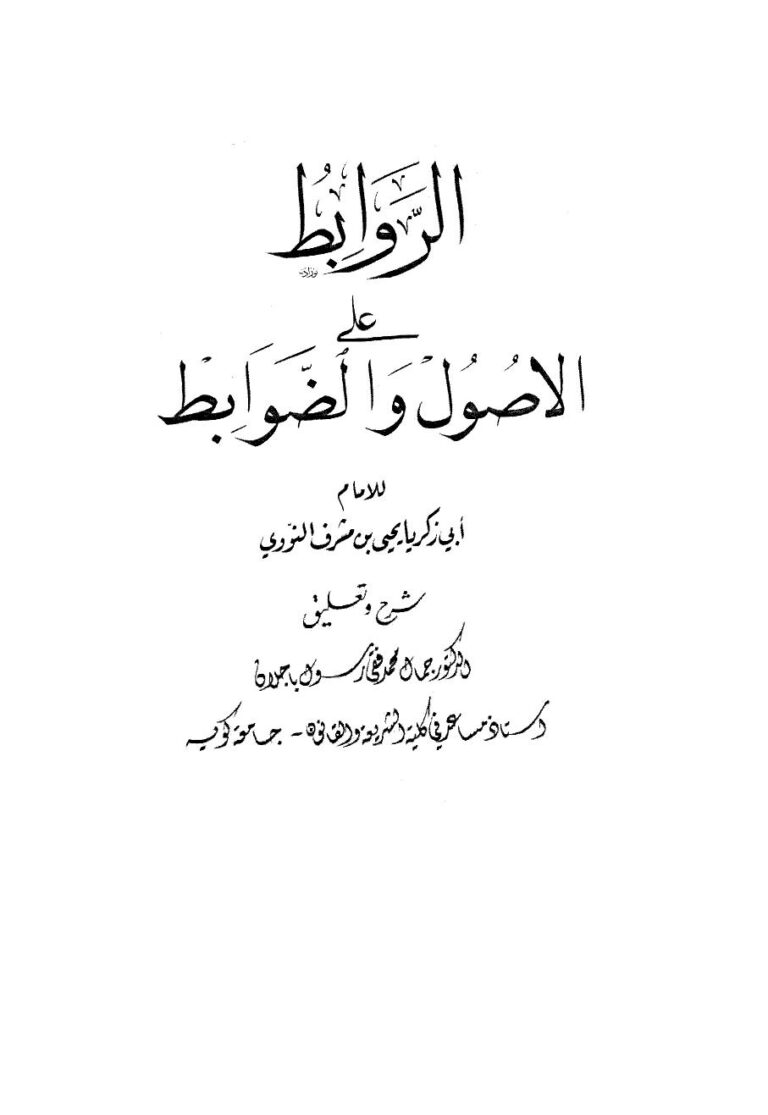 الرَّوَابِطُ
على
الاصُولْ وَالضَّوَابِطْ
للامام
أبي زكريا يحيى بن مشرف النّووي
شرح وتعليق
الدكتور جمال محمد فقي رسول باجلان
استاذ مساعد في كلية الشريعة والقانون - جامعة كويه